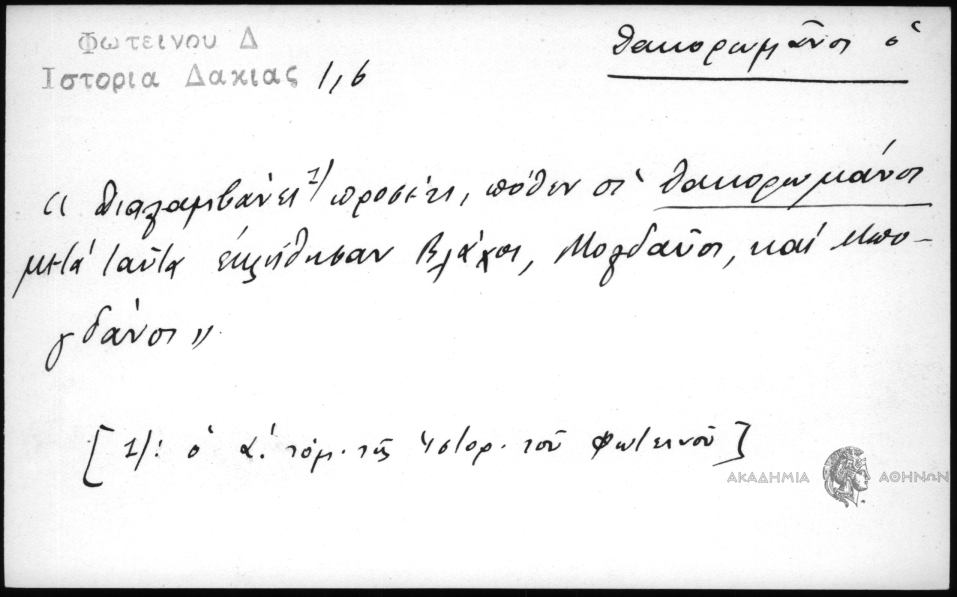 Φωτεινου Δ
Ιστορια Δακιας 1,6
Δακορωμᾶνοι ὁ
« Διαλαμβάνει 1) προσέτι, πόθεν οἱ Δακορωμάνοι
μετά ταῦτα ἐκλήθησαν Βλάχοι, Μολδαῦοι, καί Μπο-
γδάνοι »
[ 1): ὁ α΄. τόμ. τῆς Ἱστορ. τοῦ Φωτεινοῦ ]
ΑΚΑΔΗΜΙΑ ΑΘΗΝΩΝ